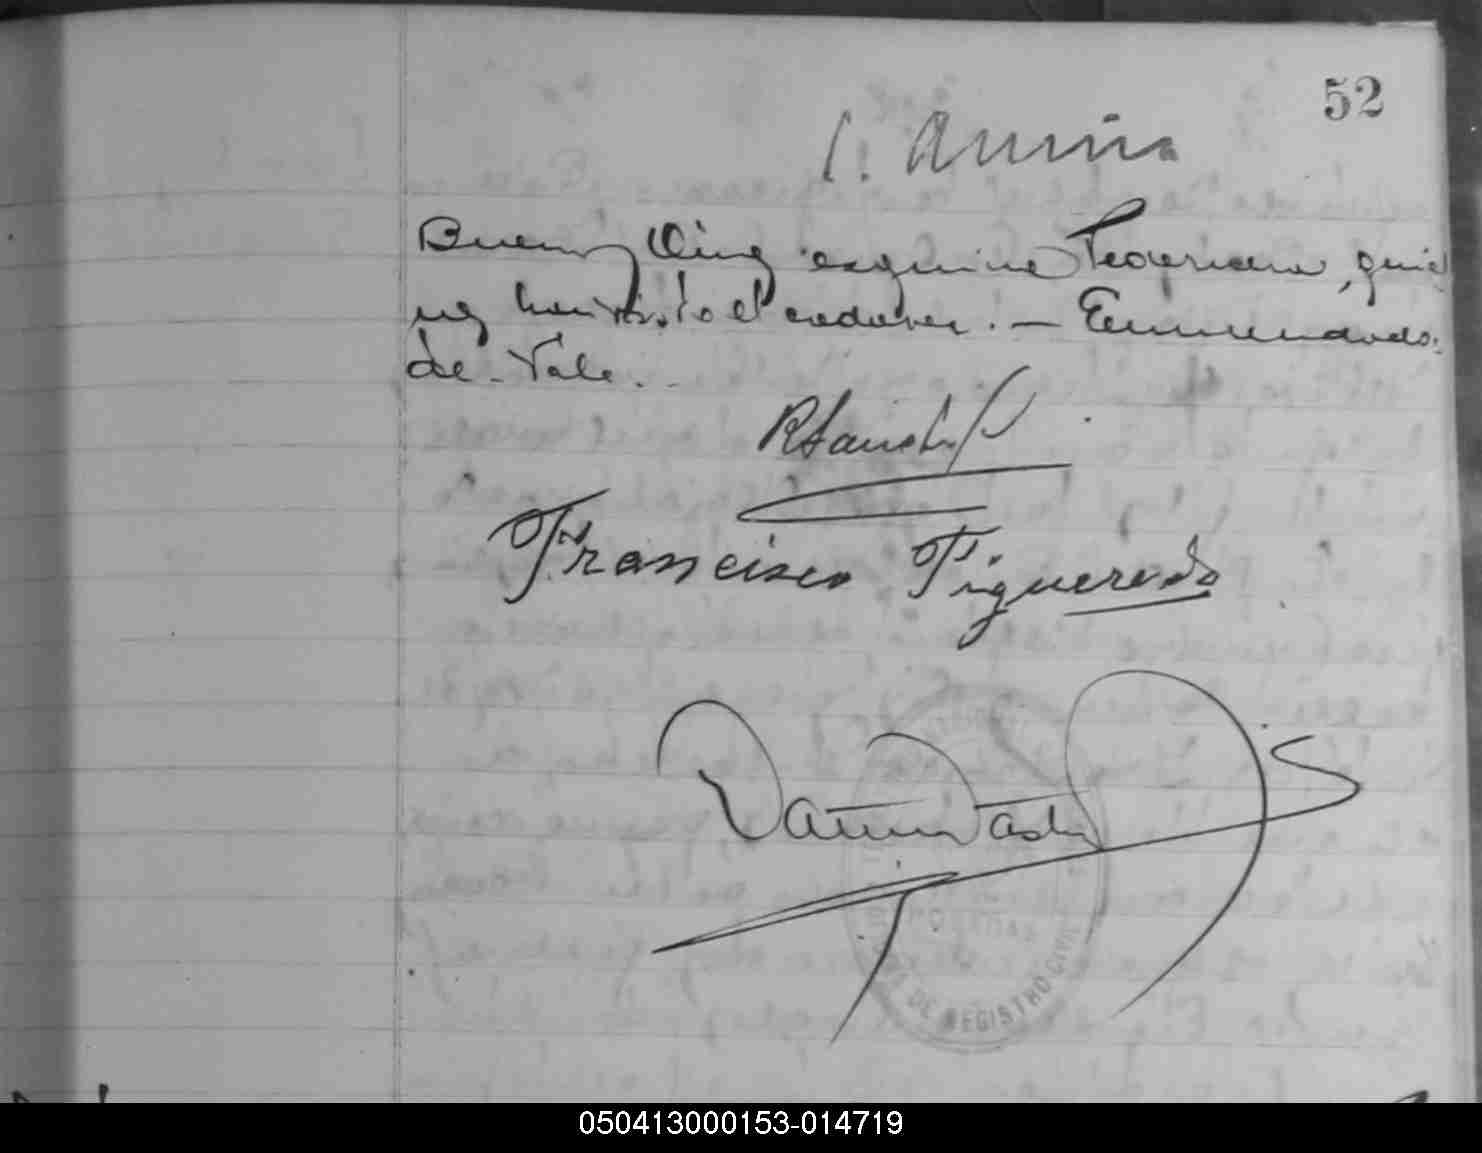 52
Buenos Aires esquina, quie
nes han visto el cadaver. — Enmendado:
de - Vale.
RSanchez
Francisco Figueredo
DE REGISTRO CIVIL
050413000153-014719